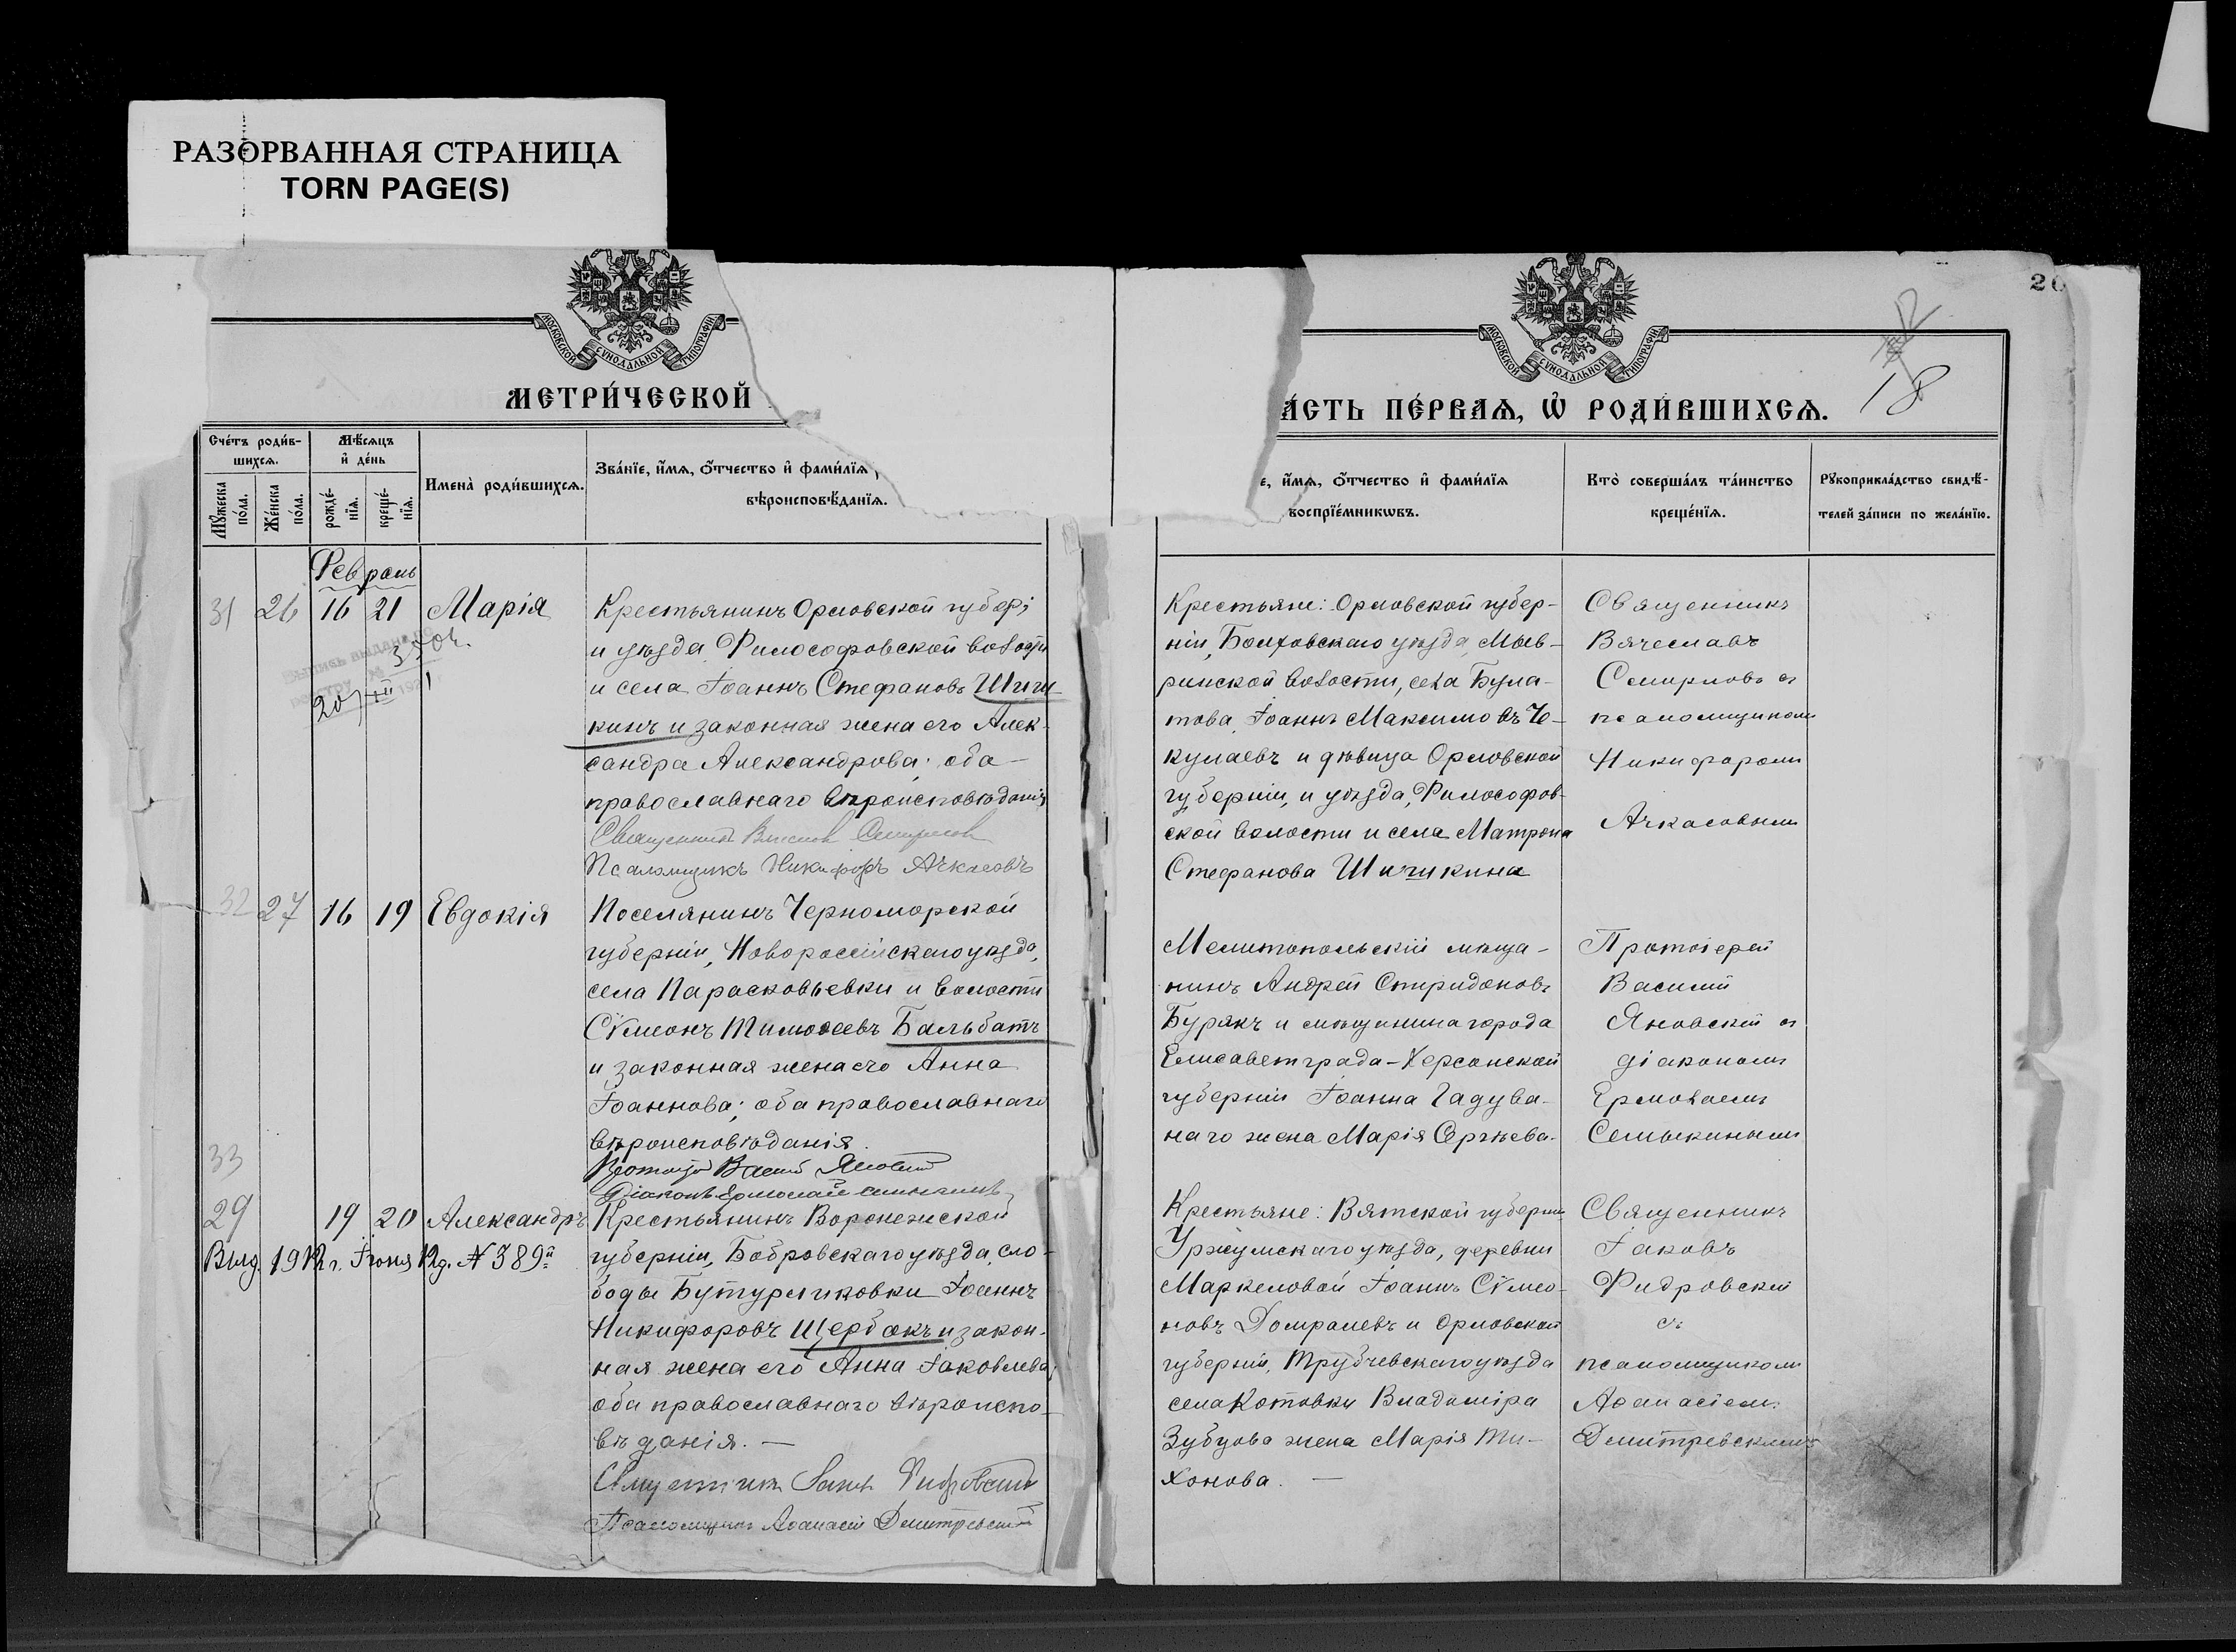 РАЗОРВАННАЯ СТРАНИЦА
TORN PAGE(S)
МОСКОВСКОЙ СѴНОДАЛЬНОЙ ТИПОГРАФІИ
МЕТРИ́ЧЕСКОЙ
Сче́тъ роди́в-
шихсѧ.
Мꙋ́жеска по́ла.
Же́нска по́ла.
Мѣ́сѧцъ
и҆ де́нь
рожде́-
нїѧ.
креще́-
нїѧ.
Имена̀ роди́вшихсѧ.
Зва́нїе, и҆́мѧ, ѻ҆́тчество и҆ фами́лїѧ
вѣроисповѣ́данїѧ.
Февраль
31 26 16 21 Марія
Крестьянинъ Орловской губер;
и уѣзда Философовской волости
и села Іоаннъ Стефановъ Шичи-
кинъ и законная жена его Алек-
сандра Александрова; оба
православнаго вѣроисповѣданія
Священникъ
Псаломщикъ Никифоръ Ачкасовъ
32 27 16 19 Евдокія
Поселянинъ Черноморской
губерніи, Новороссійскаго уѣзда,
села Парасковьевки и волости
Сѵмеонъ Тимоѳеевъ Бальбатъ
и законная жена его Анна
Іоаннова; оба православнаго
вѣроисповѣданія.
Діаконъ Ермолай
33
29 19 20 Александръ
Выд. 1912 г. Іюня 12 д. № 389
Крестьянинъ Воронежской
губерніи, Бобровскаго уѣзда, сло-
боды Бутурлиновки Іоаннъ
Никифоровъ Щербакъ и закон-
ная жена его Анна Іаковлева;
оба православнаго вѣроиспо-
вѣданія. —
Псаломщикъ Аѳанасій Димитревскій
26
МОСКОВСКОЙ СѴНОДАЛЬНОЙ ТИПОГРАФІИ
18
А́СТЬ ПЕ́РВАѦ, Ѽ РОДИ́ВШИХСѦ.
е, и҆́мѧ, ѻ҆́тчество и҆ фами́лїѧ
воспрїе́мникѡвъ.
Кто̀ соверша́лъ та́инство
креще́нїѧ.
Рꙋкоприкла́дство свидѣ́-
телей за́писи по жела́нїю.
Крестьяне: Орловской губер-
ніи, Болховскаго уѣзда, Мыв-
ринской волости, села Була-
това, Іоаннъ Максимовъ Че-
кулаевъ и дѣвица Орловской
губерніи, и уѣзда, Философов-
ской волости и села Матрона
Стефанова Шичикина
Священникъ
Вячеславъ
Смирновъ съ
псаломщикомъ
Никифоромъ
Ачкасовымъ
Мелитопольскій мѣща-
нинъ Андрей Спиридоновъ
Бурякъ и мѣщанина города
Елисаветграда-Херсонской
губерніи Іоанна Гадува-
наго жена Марія Сергѣева.
Протоіерей
Василій
Яновскій съ
діакономъ
Ермолаемъ
Семыкинымъ
Крестьяне: Вятской губерніи
Уржумскаго уѣзда, деревни
Маркеловой Іоаннъ Сѵмео-
новъ Домрачевъ и Орловской
губерніи, Трубчевскаго уѣзда
села Котовки Владиміра
Зубцова жена Марія Ти-
хонова. —
Священникъ
Іаковъ
Фидровскій
съ
псаломщикомъ
Аѳанасіемъ
Димитревскимъ